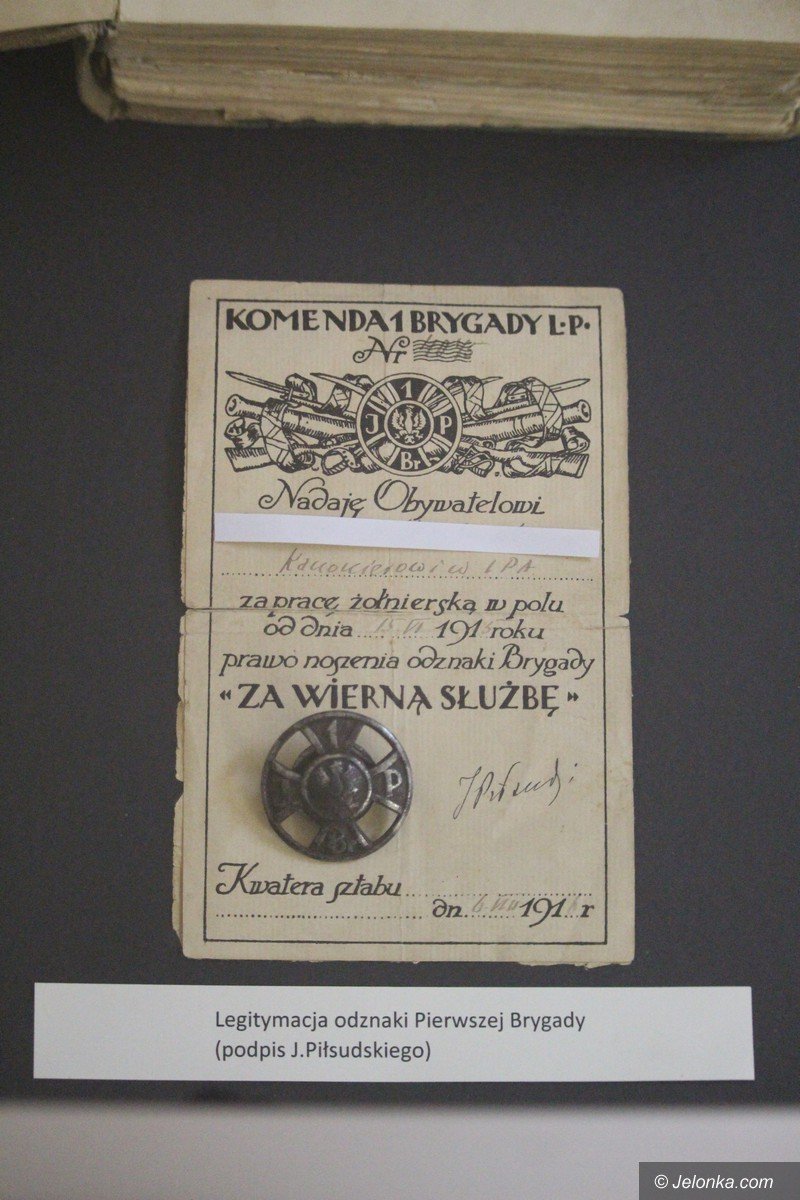 KOMENDA 1 BRYGADY L.P.
Nr
1
J P
Br
Nadaję Obywatelowi
Kanonierowi w LPA
za pracę żołnierską w polu
od dnia 15 VI 191 roku
prawo noszenia odznaki Brygady
"ZA WIERNĄ SŁUŻBĘ"
1
P
Br
JPiłsudski
Kwatera sztabu
dn. 6 VIII 191 r
Legitymacja odznaki Pierwszej Brygady
(podpis J.Piłsudskiego)
© Jelonka.com